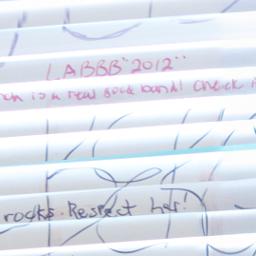 LABBB "2012"
is a real good band! Check
rocks. Respect her!